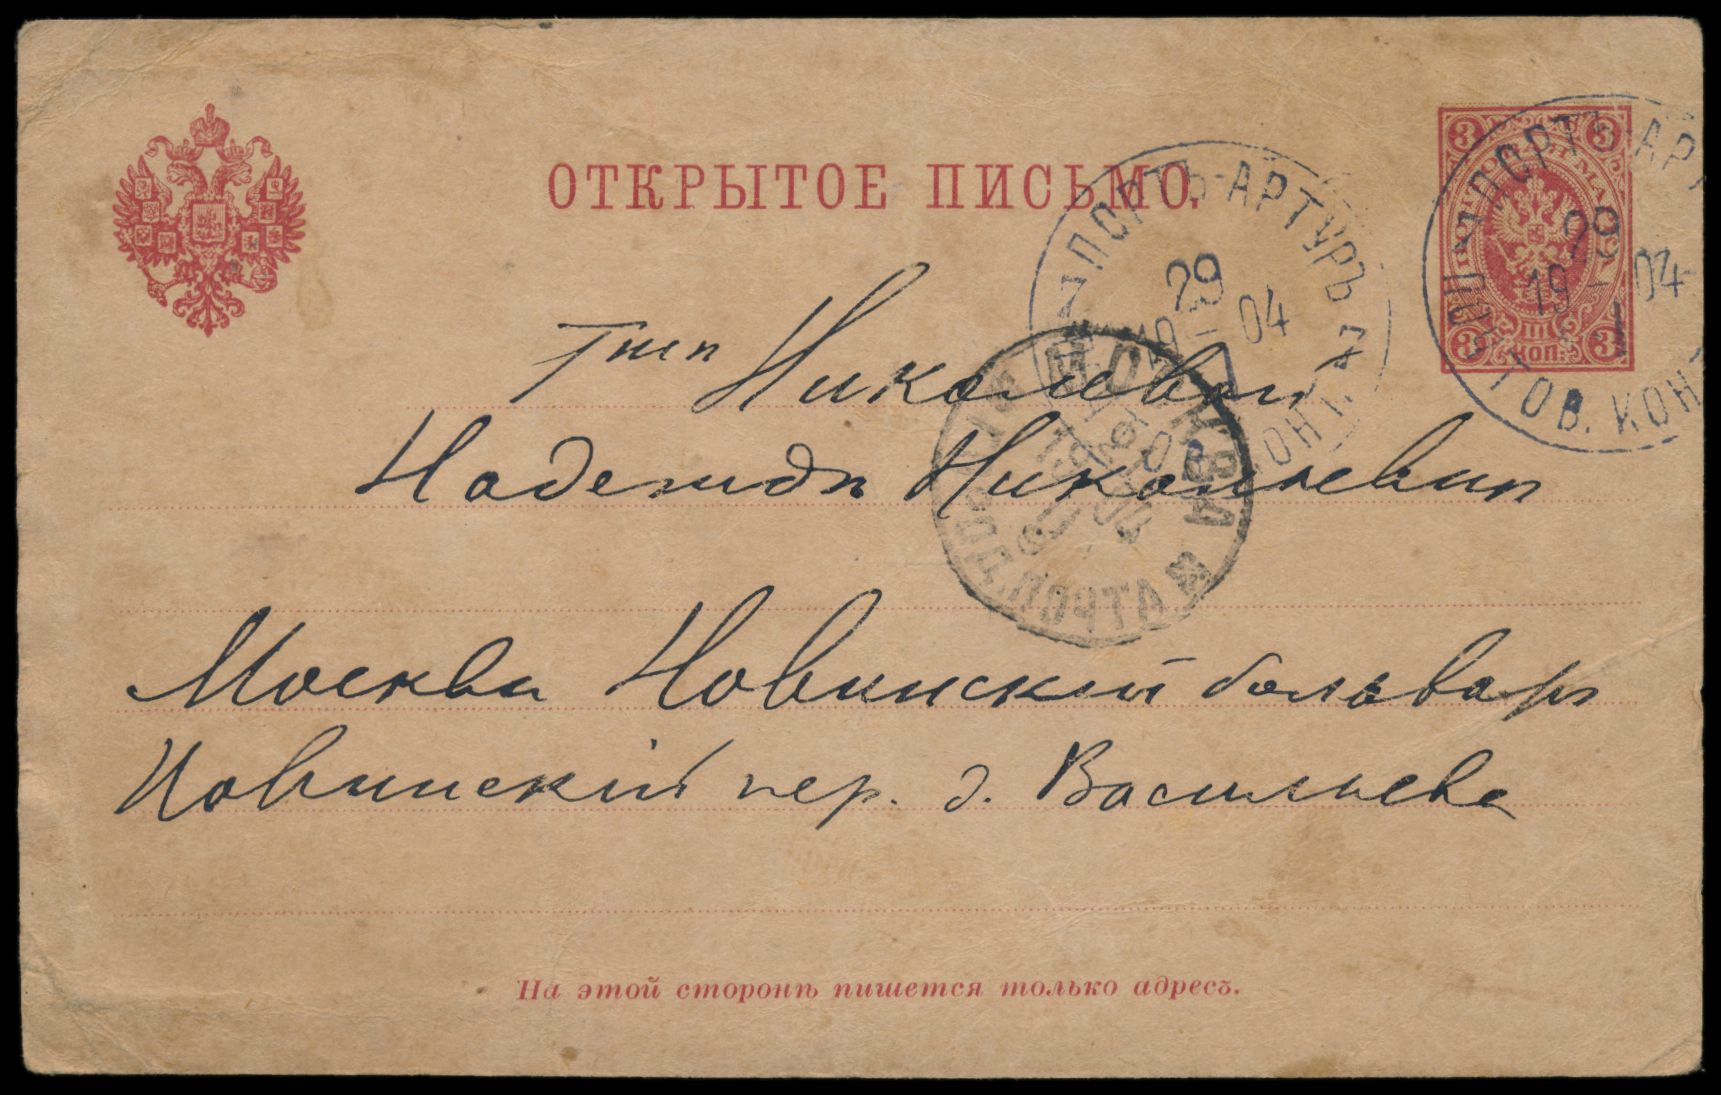 ОТКРЫТОЕ ПИСЬМО.
3 3
3 III 3
КОП.
ПОРТЪ-АРТУРЪ
29
19 I 04
ПОРТЪ-АРТ
29
19 I 04
ПОЧТОВ. КОН
МОСКВА
04
ГОР. ПОЧТА
Николевой
Надеждѣ Николаевнѣ
Москва Новинский бульваръ
Новинскій пер. д. Васильева
На этой сторонѣ пишется только адресъ.